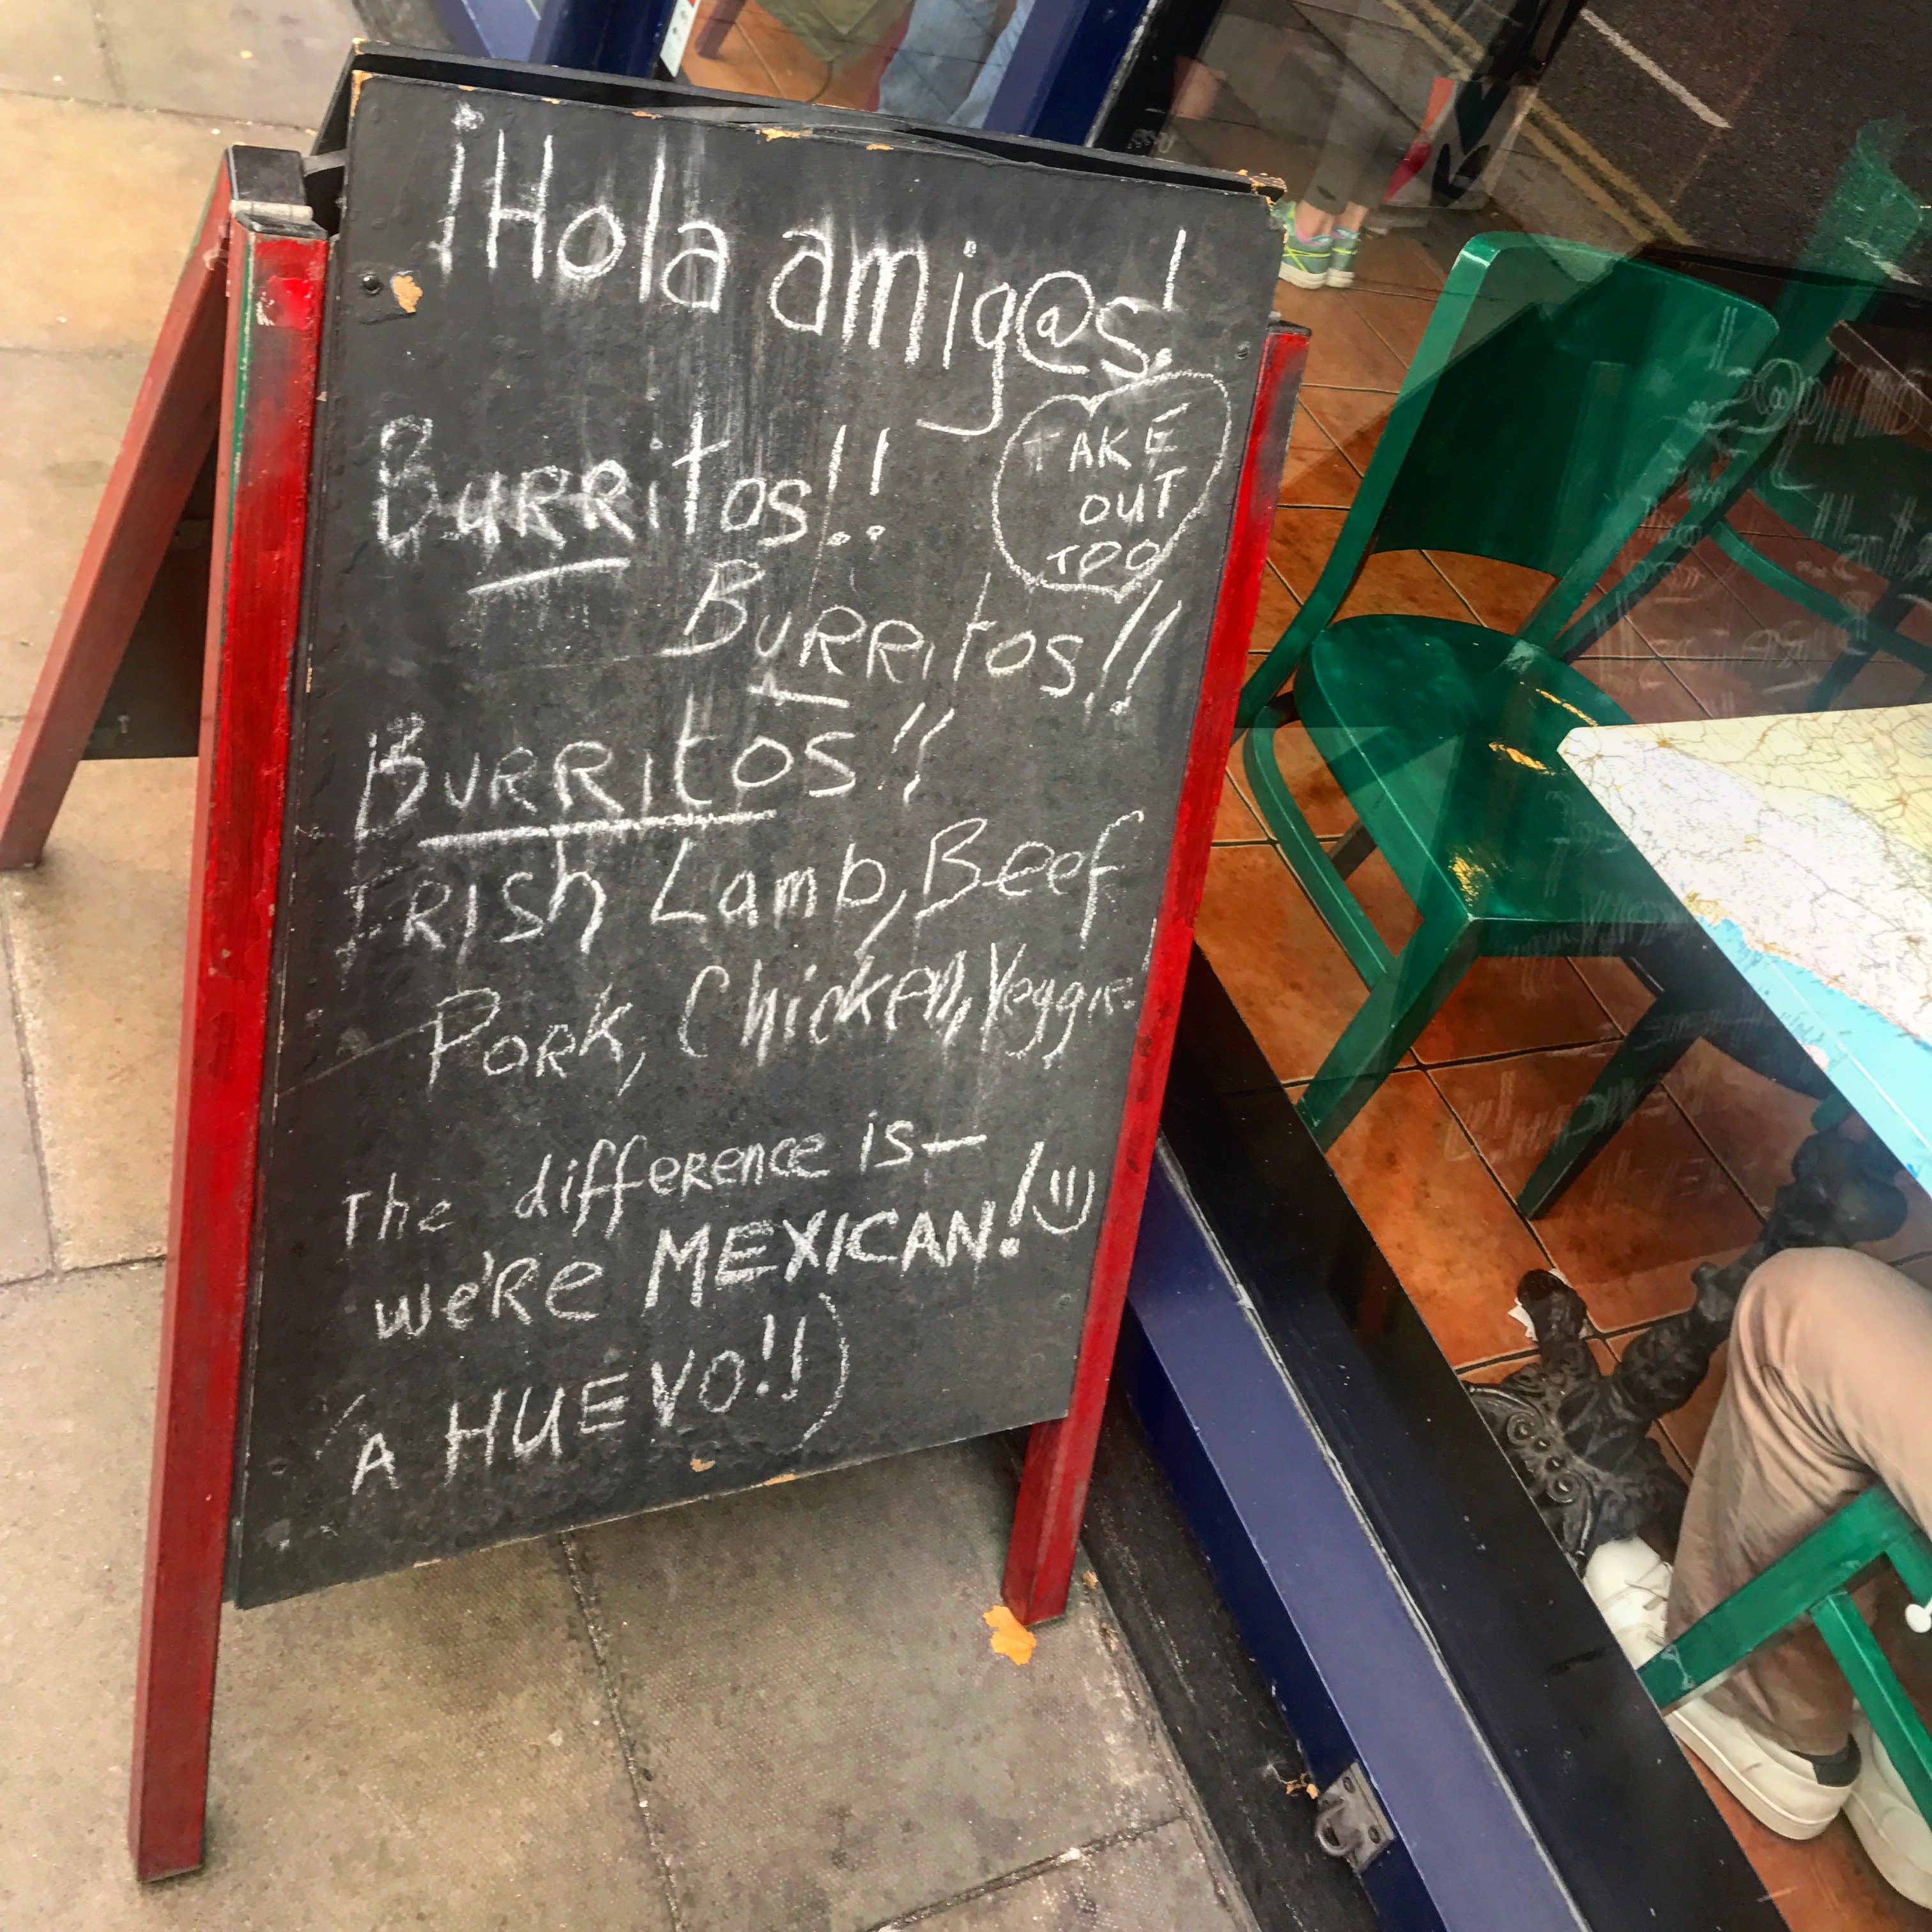 ¡Hola amig@s!
Burritos!!
TAKE
OUT
TOO
BURRitos!!
BURRItOS!!
IRISh Lamb, Beef
Pork, Chicken, Veggie.
The difference is—
we're MEXICAN! =)
A HUEVO!!)